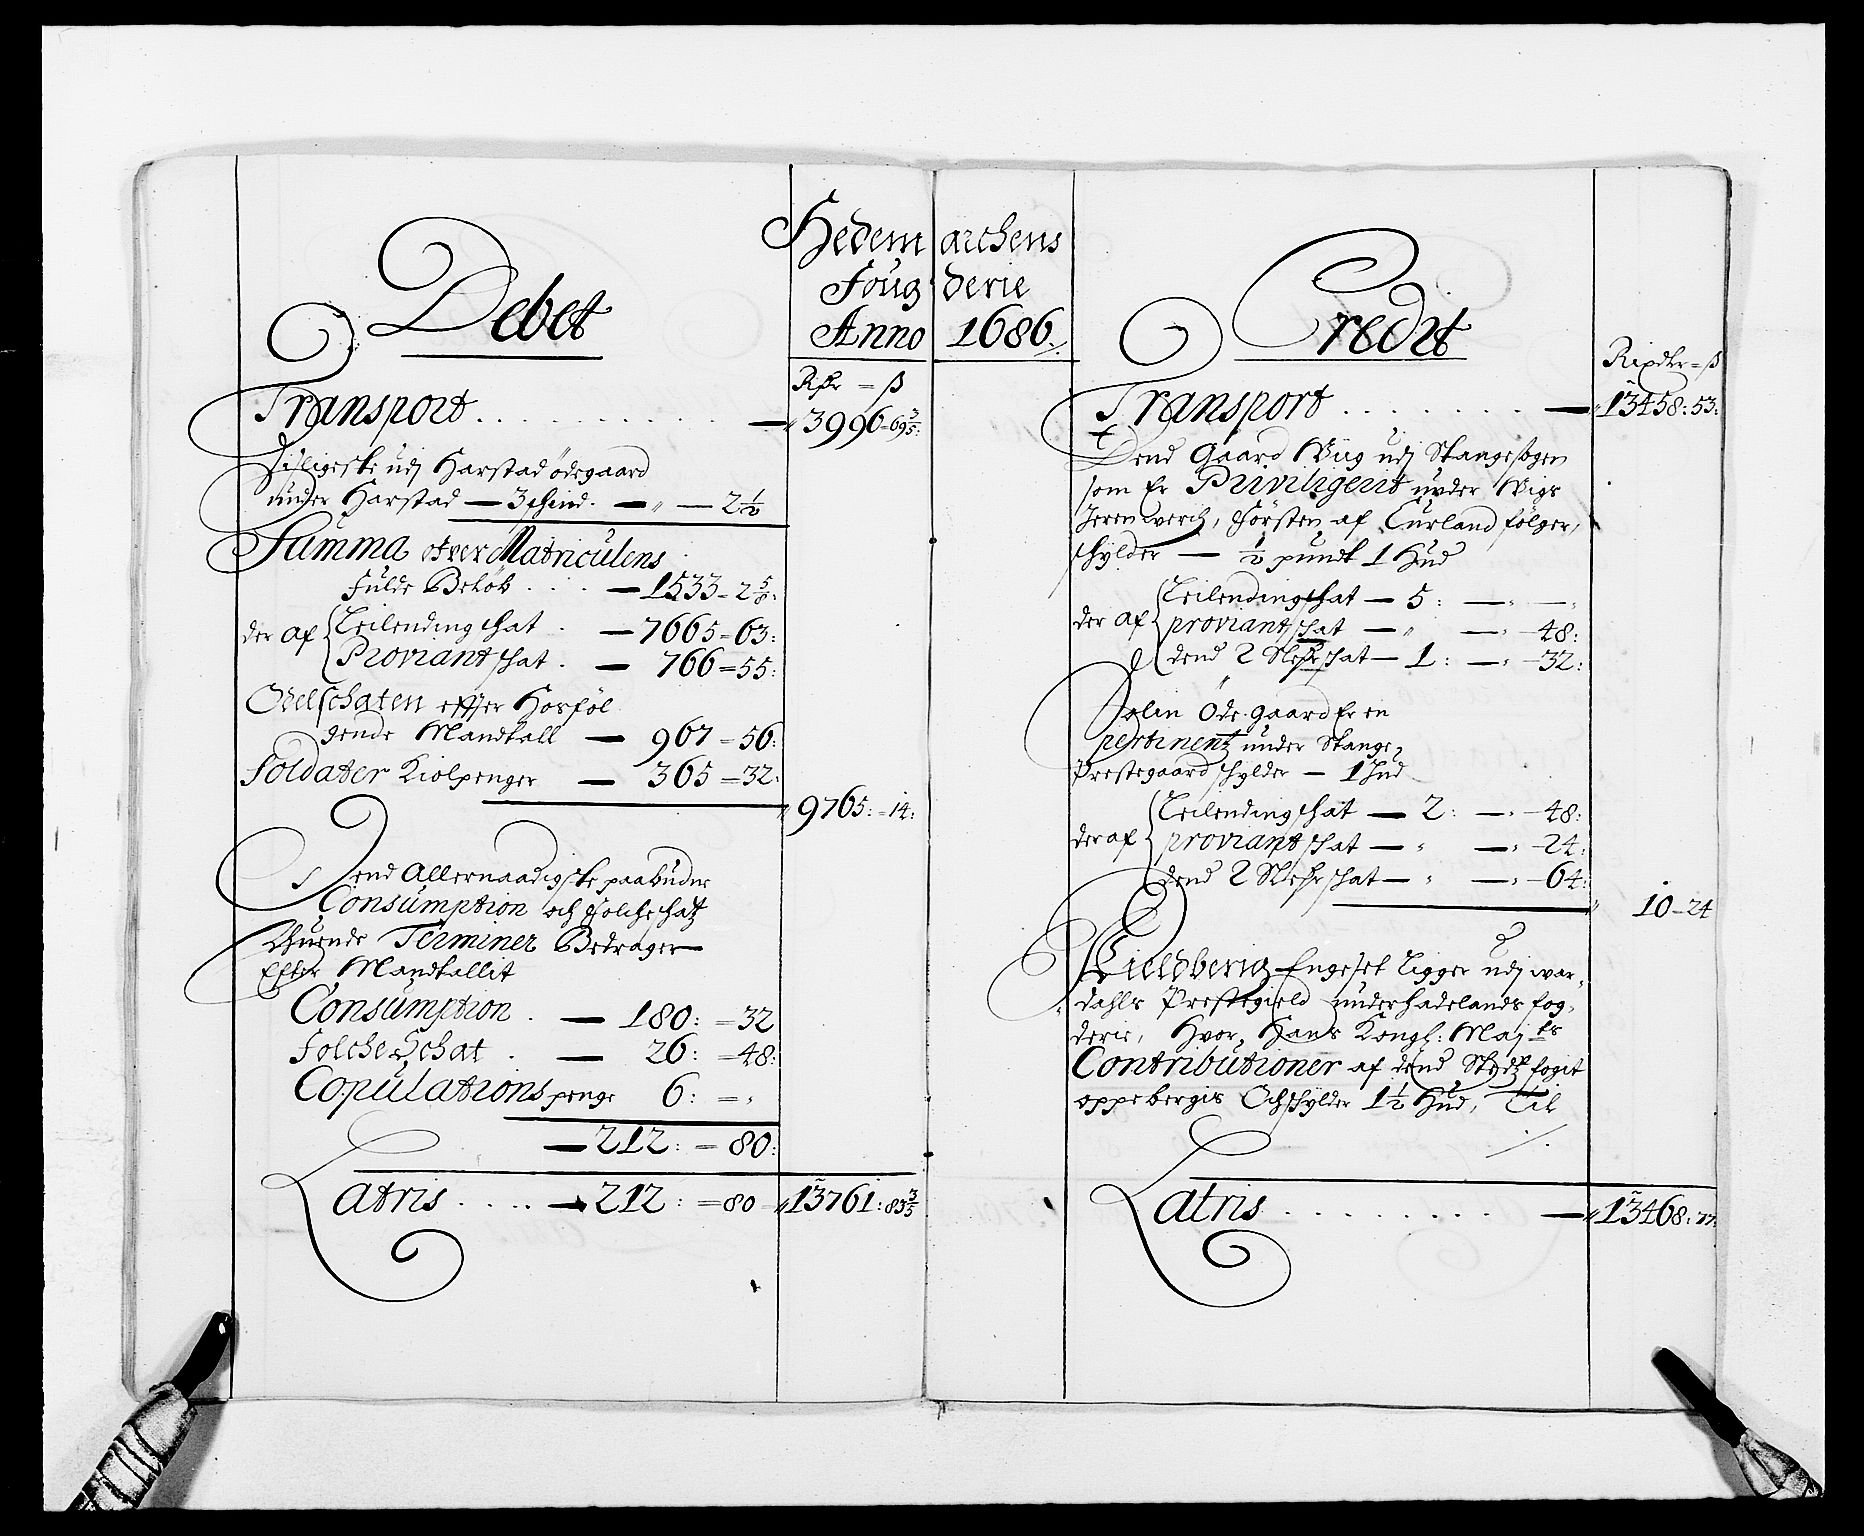 Hedemarchens
Fougderie
Anno 1686.
Debet
Rdr = ß
Transport . . . . . . . . . . — 3996=69 3/5:
Disligeste udj Harstad ödegaard
under Harstad — 3 schind. — " — 2 1/2
Summa ofver Matriculens
fulde Beløb . . . . — 1533=2 5/8:
der af Leilending schat . — 7665=63:
Proviant schat . — 766=55:
Odelschaten effter Hosföl
gende Mandtall — 967=56:
Soldater Kiolpenger — 365=32:
9765:=14:
Dend Allernaadigste paabudne
Consumption och folcheschatz
Thuende Terminer Bedrager
Efter Mandtallit
Consumption . — 180:=32
FolcheSchat . — 26:=48:
Copulations penge 6:= "
— 212:=80:
Latris . . . . — 212:=80 — 13761:83 3/5
Credit
Rixdlr=ß
Transport . . . . . . . . — 13458:53:
Dend Gaard Wiig udj Stangesogen
som Er Priviligerit under Wigs
Jerenwerch, försten af Curland fölger,
schylder — 1/2 pundt 1 Hud
der af Leilendingschat — 5: — " — "
proviant schat — " — " — 48:
dend 2 Slehr schat — 1: — " — 32:
Solin Öde gaard Er en
pertinentz under Stange
Prestegaard schylder — 1 Hud
der af Leilending schat — 2: — " — 48:
proviant schat — " — " — 24:
dend 2 Slehr schat — " — " — 64:
10 — 24
Kieldberig Engeset Ligger udj War-
dahls Prestegield underhadelands fog-
derie, Hvor, Hans Kongl: Maj.ts
Contributioner af dend Stedtz fogit
oppebergis Och schylder 1 1/2 Hud, Til
Latris . . . . . . . . — 13468:77: